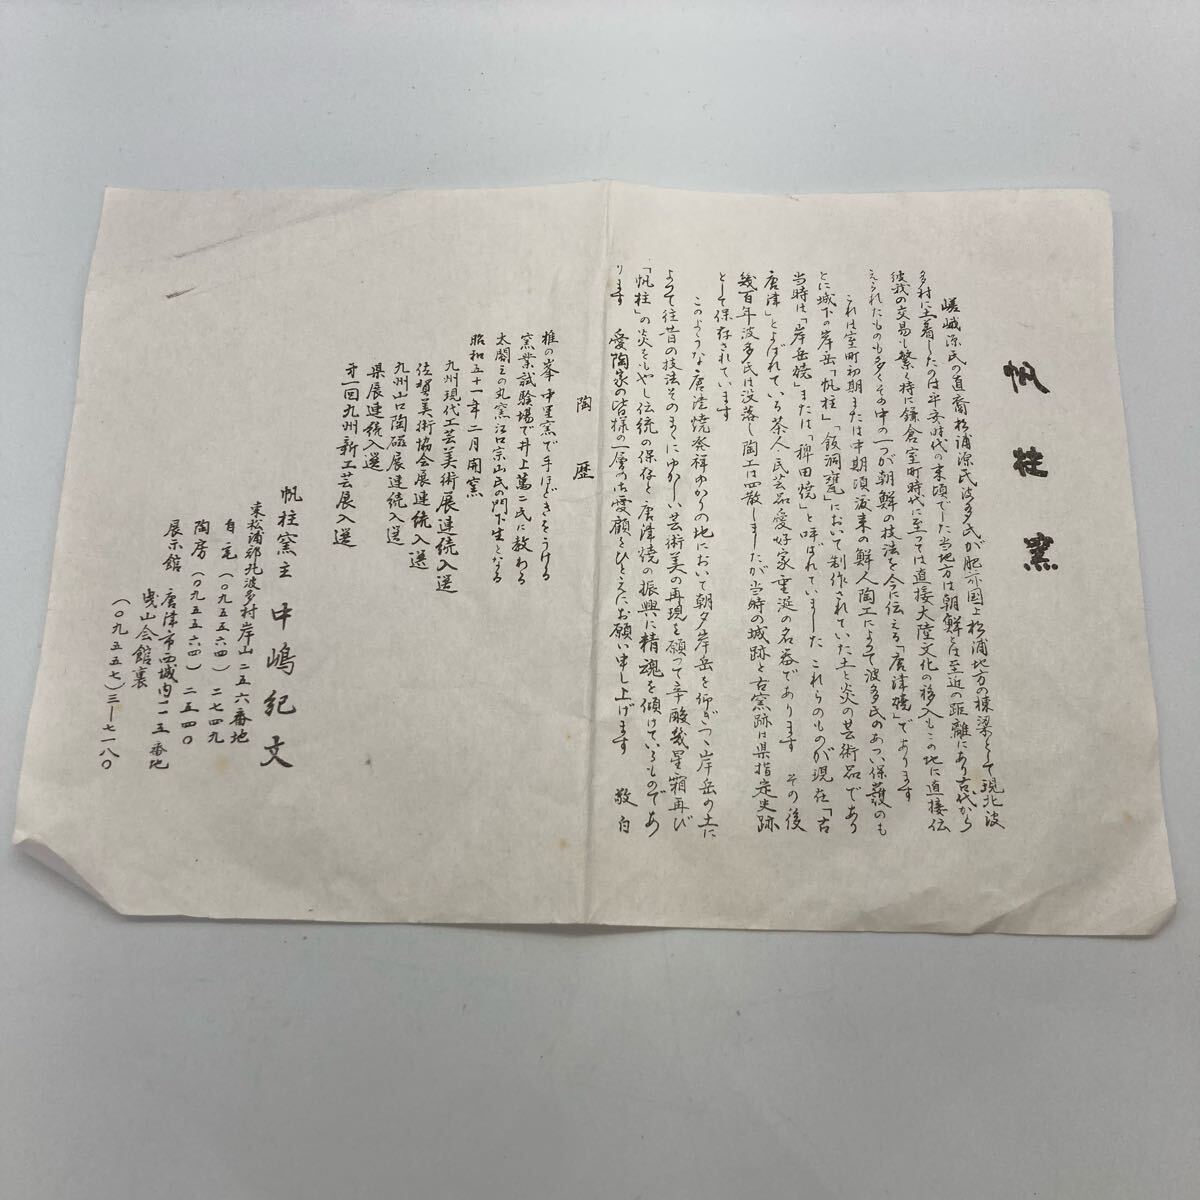 帆柱窯
嵯峨源氏の直裔松浦源氏波多氏が肥前国上松浦地方の棟梁として現北波
多村に土着したのは平安時代の末頃でした当地方は朝鮮とは至近の距離にあり古代から
彼我の交易も繁く特に鎌倉室町時代に至っては直接大陸文化の移入もこの地に直接伝
えられたものも多くその中の一つが朝鮮の技法を今に伝える「唐津焼」であります
これは室町初期または中期頃渡来の鮮人陶工によって波多氏のあつい保護のも
とに城下の岸岳「帆柱」「飯洞甕」において制作されていた土と炎の芸術品であり
当時は「岸岳焼」または「稗田焼」と呼ばれていました これらのものが現在「古
唐津」とよばれている茶人、民芸品愛好家垂涎の名器であります その後
幾百年波多氏は没落し陶工は四散しましたが当時の城跡と古窯跡は県指定史跡
として保存されています
このような唐津焼発祥ゆかりの地において朝夕岸岳を仰ぎつゝ岸岳の土に
よって往昔の技法そのまゝにゆかしい芸術美の再現を願って辛酸幾星霜再び
「帆柱」の炎をもやし伝統の保存と唐津焼の振興に精魂を傾けているものであ
ります 愛陶家の皆様の一層の御愛顧をひとえにお願い申し上げます 敬白
陶歴
椎の峯中里窯で手ほどきをうける
窯業試験場で井上萬二氏に教わる
太閤三の丸窯江口宗山氏の門下生となる
昭和五十一年二月開窯
九州現代工芸美術展連続入選
佐賀美術協会展連続入選
九州山口陶磁展連続入選
県展連続入選
才一回九州新工芸展入選
帆柱窯主 中嶋紀文
東松浦郡北波多村岸山二五六番地
自宅(〇九五五六四)二七四九
陶房(〇九五五六四)二五四〇
展示館 唐津市西城内一一五番地
曳山会館裏
(〇九五五七)三―七一八〇